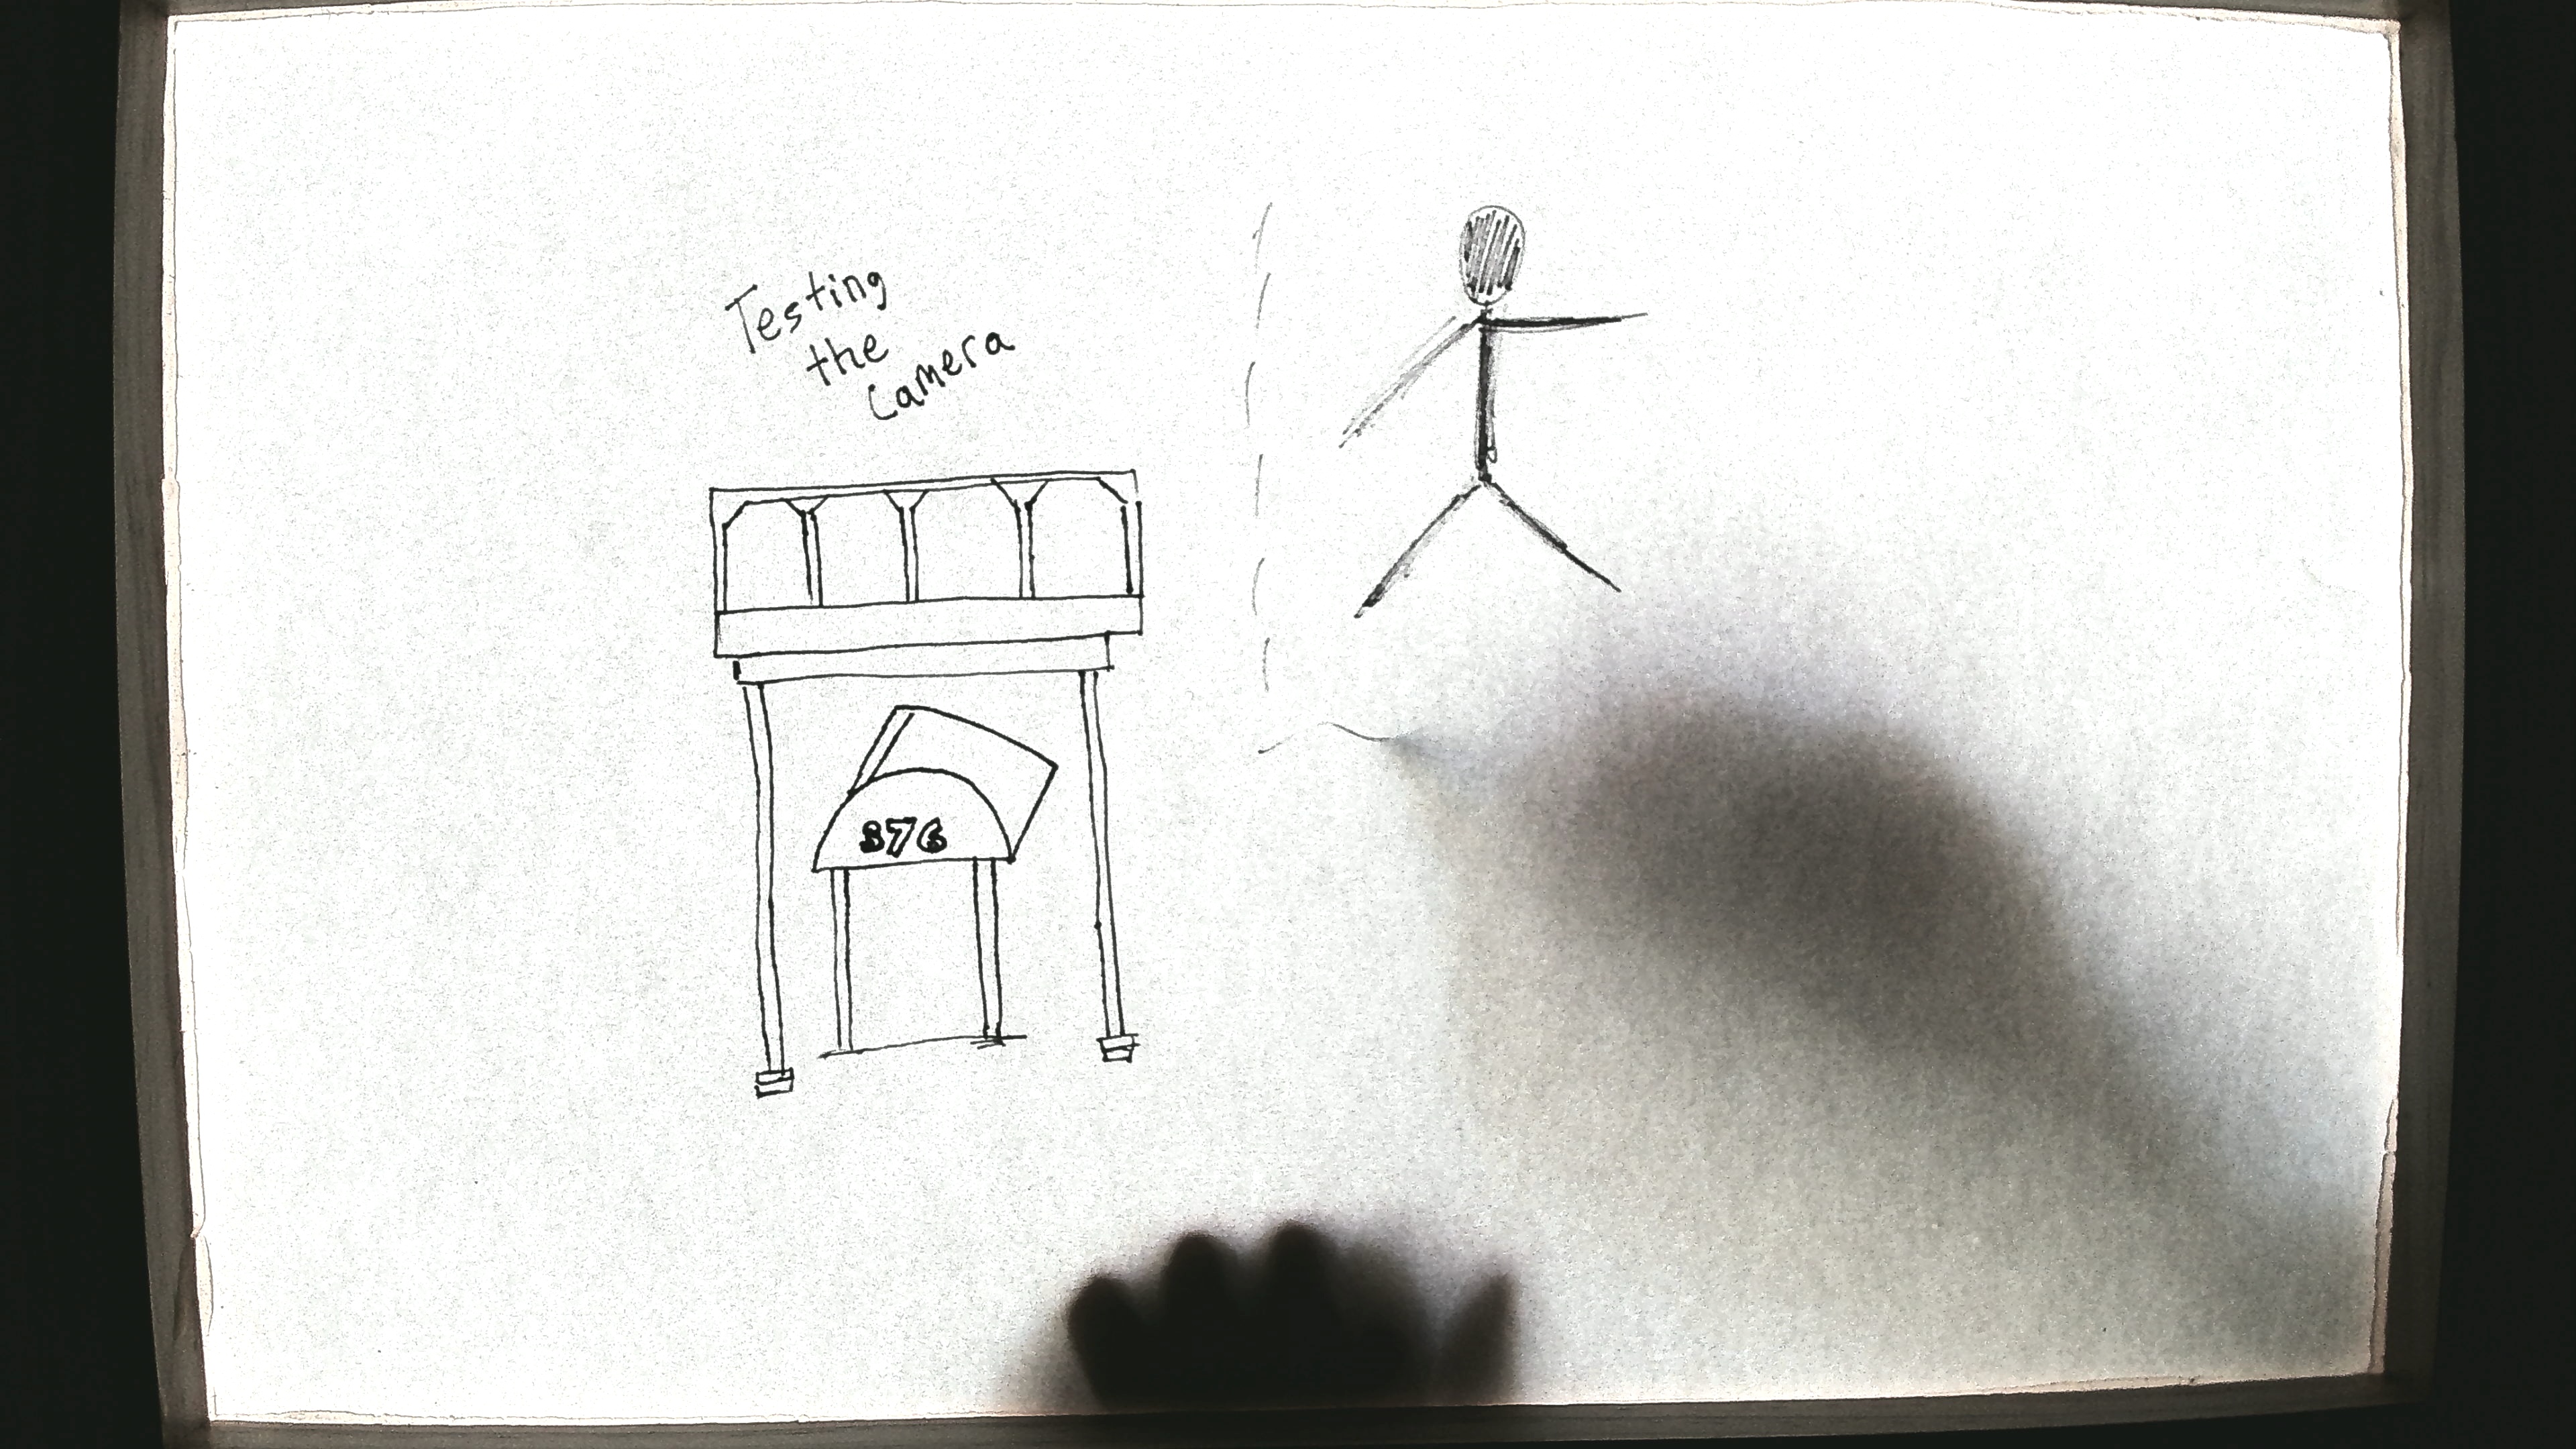 Testing
the
Camera
876